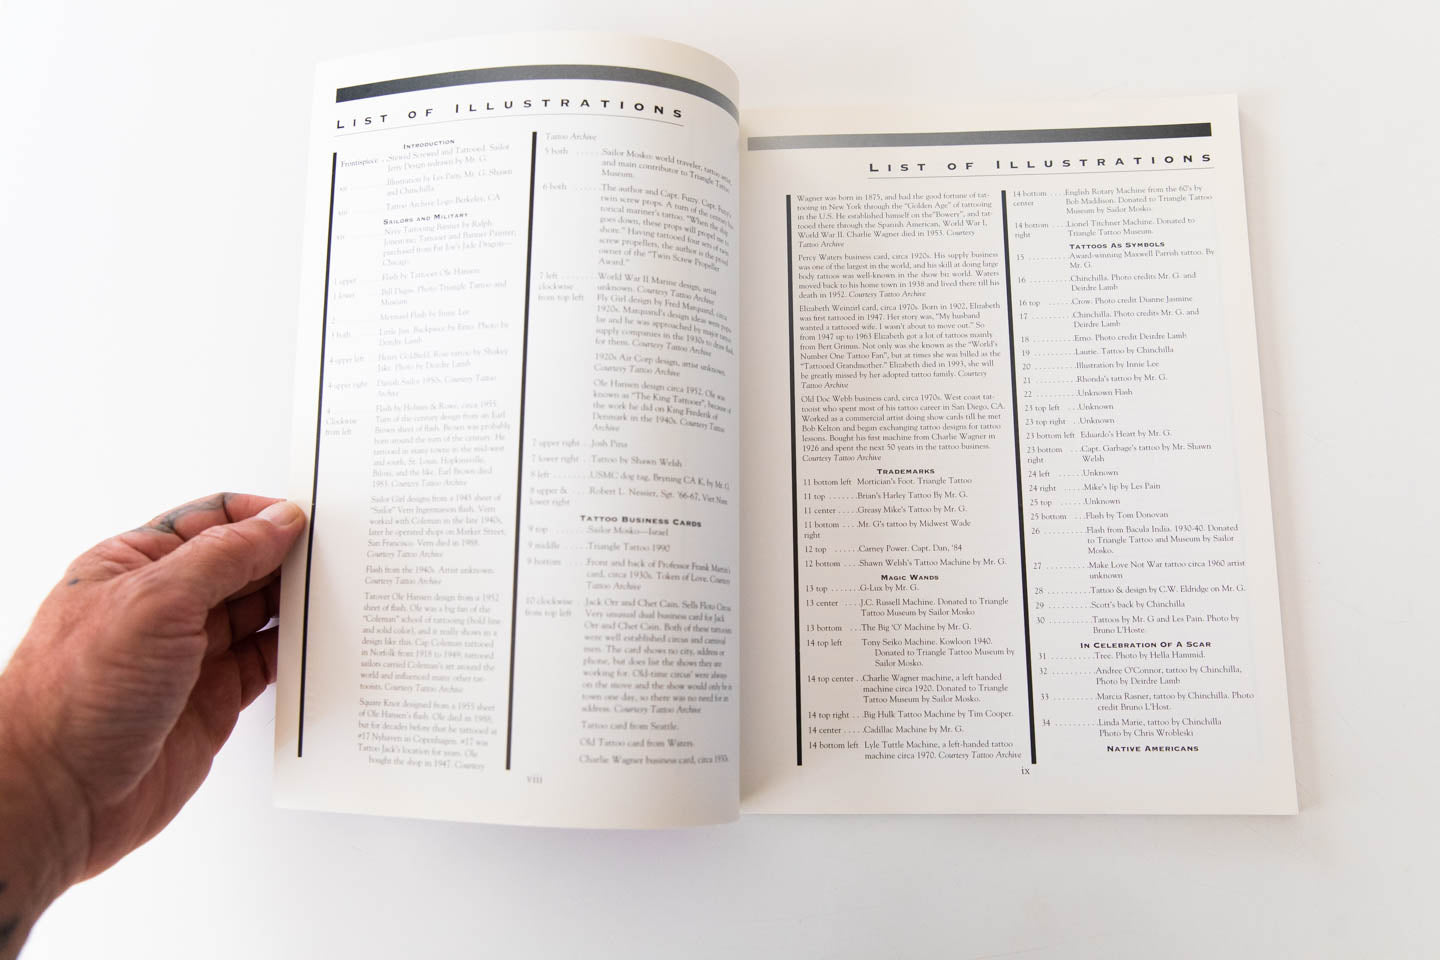 List of Illustrations
Introduction
Frontispiece . . Stewed Screwed and Tattooed. Sailor
Jerry Design redrawn by Mr. G.
Illustration by Les Pain, Mr. G, Shawn
and Chinchilla
Tattoo Archive Logo Berkeley, CA
Sailors and Military
Navy Tattooing Banner by Ralph
Johnstone, Tattooer and Banner Painter,
purchased from Fat Joe's Jade Dragon—
Chicago.
1 upper Flash by Tattooer Ole Hansen
1 lower Bill Dugas. Photo Triangle Tattoo and
Museum
2 Mermaid Flash by Innie Lee
3 both Little Jim. Backpiece by Erno. Photo by
Deirdre Lamb
4 upper left Henry Goldfield, Rose tattoo by Shakey
Jake. Photo by Deirdre Lamb
4 upper right Danish Sailor 1950s. Courtesy Tattoo
Archive
4
Clockwise
from left
Flash by Holmes & Rowe, circa 1955.
Turn of the century design from an Earl
Brown sheet of flash. Brown was probably
born around the turn of the century. He
tattooed in many towns in the mid-west
and south, St. Louis, Hopkinsville,
Biloxi, and the like. Earl Brown died
1983. Courtesy Tattoo Archive
Sailor Girl designs from a 1943 sheet of
"Sailor" Vern Ingemarson flash. Vern
worked with Coleman in the late 1940s,
later he operated shops on Market Street,
San Francisco. Vern died in 1988.
Courtesy Tattoo Archive
Flash from the 1940s. Artist unknown.
Courtesy Tattoo Archive
Tatover Ole Hansen design from a 1952
sheet of flash. Ole was a big fan of the
"Coleman" school of tattooing (bold line
and solid color), and it really shows in a
design like this. Cap Coleman tattooed
in Norfolk from 1918 to 1949, tattooed
sailors carried Coleman's art around the
world and influenced many other tat-
tooists. Courtesy Tattoo Archive
Square Knot designed from a 1955 sheet
of Ole Hansen's flash. Ole died in 1988,
but for decades before that he tattooed at
#17 Nyhaven in Copenhagen. #17 was
Tattoo Jack's location for years. Ole
bought the shop in 1947. Courtesy
Tattoo Archive
5 both . . . . . . Sailor Mosko: world traveler, tattoo artist,
and main contributor to Triangle Tattoo
Museum.
6 both . . . . . . The author and Capt. Fuzzy. Capt. Fuzzy's
twin screw props. A turn of the century his-
torical mariner's tattoo. "When the ship
goes down, these props will propel me to
shore." Having tattooed four sets of twin
screw propellers, the author is the proud
owner of the "Twin Screw Propeller
Award."
7 left . . . . . . . World War II Marine design, artist
clockwise unknown. Courtesy Tattoo Archive
from top left Fly Girl design by Fred Marquand, circa
1920s. Marquand's design ideas were popu-
lar and he was approached by major tattoo
supply companies in the 1930s to draw flash
for them. Courtesy Tattoo Archive
1920s Air Corp design, artist unknown.
Courtesy Tattoo Archive
Ole Hansen design circa 1952. Ole was
known as "The King Tattooer", because of
the work he did on King Frederik of
Denmark in the 1940s. Courtesy Tattoo
Archive
7 upper right . Josh Pina
7 lower right . Tattoo by Shawn Welsh
8 left . . . . . . . USMC dog tag, Bryning CA K, by Mr. G.
8 upper & . . . Robert L. Nessier, Sgt. '66-67, Viet Nam
lower right
Tattoo Business Cards
9 top . . . . . . . Sailor Mosko—Israel
9 middle . . . . Triangle Tattoo 1990
9 bottom . . . . Front and back of Professor Frank Martin's
card, circa 1930s. Token of Love. Courtesy
Tattoo Archive
10 clockwise . . Jack Orr and Chet Cain. Sells Floto Circus
from top left Very unusual dual business card for Jack
Orr and Chet Cain. Both of these tattooists
were well established circus and carnival
men. The card shows no city, address or
phone, but does list the shows they are
working for. Old-time circus' were always
on the move and the show would only be in
town one day, so there was no need for an
address. Courtesy Tattoo Archive
Tattoo card from Seattle.
Old Tattoo card from Waters
Charlie Wagner business card, circa 1930s.
viii
List of Illustrations
Wagner was born in 1875, and had the good fortune of tat-
tooing in New York through the "Golden Age" of tattooing
in the U.S. He established himself on the "Bowery", and tat-
tooed there through the Spanish American, World War I,
World War II. Charlie Wagner died in 1953. Courtesy
Tattoo Archive
Percy Waters business card, circa 1920s. His supply business
was one of the largest in the world, and his skill at doing large
body tattoos was well-known in the show biz world. Waters
moved back to his home town in 1938 and lived there till his
death in 1952. Courtesy Tattoo Archive
Elizabeth Weinzirl card, circa 1970s. Born in 1902, Elizabeth
was first tattooed in 1947. Her story was, "My husband
wanted a tattooed wife. I wasn't about to move out." So
from 1947 up to 1963 Elizabeth got a lot of tattoos mainly
from Bert Grimm. Not only was she known as the "World's
Number One Tattoo Fan", but at times she was billed as the
"Tattooed Grandmother." Elizabeth died in 1993, she will
be greatly missed by her adopted tattoo family. Courtesy
Tattoo Archive
Old Doc Webb business card, circa 1970s. West coast tat-
tooist who spent most of his tattoo career in San Diego, CA.
Worked as a commercial artist doing show cards till he met
Bob Kelton and began exchanging tattoo designs for tattoo
lessons. Bought his first machine from Charlie Wagner in
1926 and spent the next 50 years in the tattoo business.
Courtesy Tattoo Archive
Trademarks
11 bottom left Mortician's Foot. Triangle Tattoo
11 top . . . . . . Brian's Harley Tattoo By Mr. G.
11 center . . . . Greasy Mike's Tattoo by Mr. G.
11 bottom . . . Mr. G's tattoo by Midwest Wade
right
12 top . . . . . . Carney Power. Capt. Dan, '84
12 bottom . . . Shawn Welsh's Tattoo Machine by Mr. G.
Magic Wands
13 top . . . . . . G-Lux by Mr. G.
13 center . . . . J.C. Russell Machine. Donated to Triangle
Tattoo Museum by Sailor Mosko
13 bottom . . . The Big 'O' Machine by Mr. G.
14 top left Tony Seiko Machine. Kowloon 1940.
Donated to Triangle Tattoo Museum by
Sailor Mosko.
14 top center . . Charlie Wagner machine, a left handed
machine circa 1920. Donated to Triangle
Tattoo Museum by Sailor Mosko.
14 top right . . . Big Hulk Tattoo Machine by Tim Cooper.
14 center . . . . Cadillac Machine by Mr. G.
14 bottom left Lyle Tuttle Machine, a left-handed tattoo
machine circa 1970. Courtesy Tattoo Archive
14 bottom . . . . English Rotary Machine from the 60's by
center Bob Maddison. Donated to Triangle Tattoo
Museum by Sailor Mosko.
14 bottom . . . . Lionel Titchner Machine. Donated to
right Triangle Tattoo Museum.
Tattoos As Symbols
15 . . . . . . . . . Award-winning Maxwell Parrish tattoo. By
Mr. G.
16 . . . . . . . . . Chinchilla. Photo credits Mr. G. and
Deirdre Lamb
16 top . . . . . . Crow. Photo credit Dianne Jasmine
17 . . . . . . . . . Chinchilla. Photo credits Mr. G. and
Deirdre Lamb
18 . . . . . . . . . Erno. Photo credit Deirdre Lamb
19 . . . . . . . . . Laurie. Tattoo by Chinchilla
20 . . . . . . . . . Illustration by Innie Lee
21 . . . . . . . . . Rhonda's tattoo by Mr. G.
22 . . . . . . . . . Unknown Flash
23 top left . . . Unknown
23 top right . . Unknown
23 bottom left Eduardo's Heart by Mr. G.
23 bottom . . . Capt. Garbage's tattoo by Mr. Shawn
right Welsh
24 left . . . . . . Unknown
24 right . . . . . Mike's lip by Les Pain
25 top . . . . . . Unknown
25 bottom . . . Flash by Tom Donovan
26 . . . . . . . . . Flash from Bacula India. 1930-40. Donated
to Triangle Tattoo and Museum by Sailor
Mosko.
27 . . . . . . . . . Make Love Not War tattoo circa 1960 artist
unknown
28 . . . . . . . . . Tattoo & design by C.W. Eldridge on Mr. G.
29 . . . . . . . . . Scott's back by Chinchilla
30 . . . . . . . . . Tattoos by Mr. G and Les Pain. Photo by
Bruno L'Hoste.
In Celebration Of A Scar
31 . . . . . . . . . Tree. Photo by Hella Hammid.
32 . . . . . . . . . Andree O'Connor, tattoo by Chinchilla,
Photo by Deirdre Lamb
33 . . . . . . . . . Marcia Rasner, tattoo by Chinchilla. Photo
credit Bruno L'Host.
34 . . . . . . . . . Linda Marie, tattoo by Chinchilla
Photo by Chris Wrobleski
Native Americans
ix